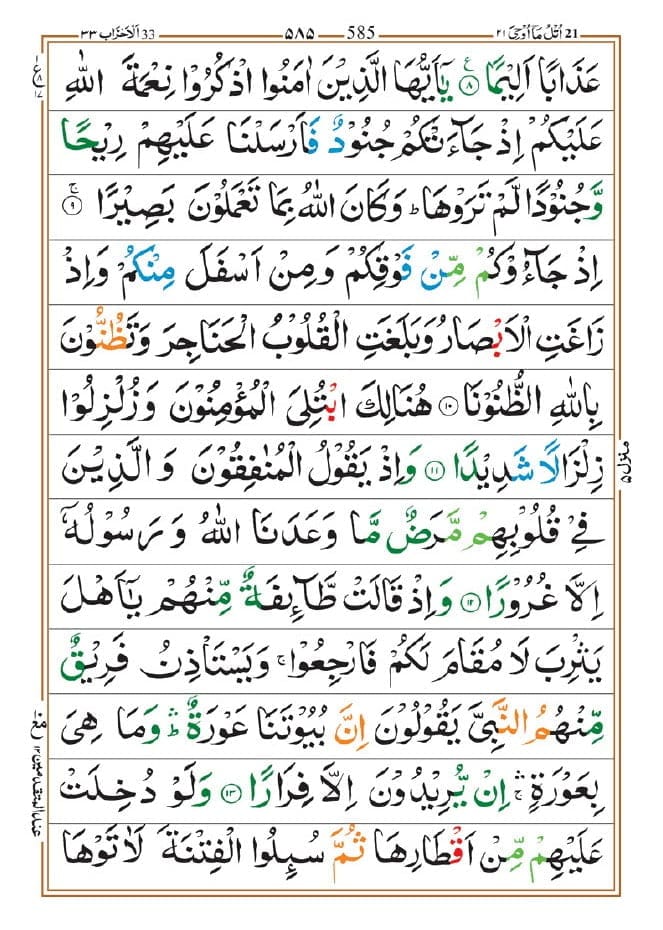 21 اُتْلُ مَآ اُوْحِىَ ۲۱ 585 ۵۸۵ 33 اَلْاَحْزَاب ۳۳
عَذَابًا اَلِيْمًا ۸ يٰۤاَيُّهَا الَّذِيْنَ اٰمَنُوا اذْكُرُوْا نِعْمَةَ اللّٰهِ
عَلَيْكُمْ اِذْ جَآءَتْكُمْ جُنُوْدٌ فَاَرْسَلْنَا عَلَيْهِمْ رِيْحًا
وَّجُنُوْدًا لَّمْ تَرَوْهَا ؕ وَكَانَ اللّٰهُ بِمَا تَعْمَلُوْنَ بَصِيْرًا ۚ ۹
اِذْ جَآءُوْكُمْ مِّنْ فَوْقِكُمْ وَمِنْ اَسْفَلَ مِنْكُمْ وَاِذْ
زَاغَتِ الْاَبْصَارُ وَبَلَغَتِ الْقُلُوْبُ الْحَنَاجِرَ وَتَظُنُّوْنَ
بِاللّٰهِ الظُّنُوْنَا ۱۰ هُنَالِكَ ابْتُلِىَ الْمُؤْمِنُوْنَ وَزُلْزِلُوْا
زِلْزَالًا شَدِيْدًا ۱۱ وَاِذْ يَقُوْلُ الْمُنٰفِقُوْنَ وَالَّذِيْنَ
فِىْ قُلُوْبِهِمْ مَّرَضٌ مَّا وَعَدَنَا اللّٰهُ وَرَسُوْلُهٗۤ
اِلَّا غُرُوْرًا ۱۲ وَاِذْ قَالَتْ طَّآئِفَةٌ مِّنْهُمْ يٰۤاَهْلَ
يَثْرِبَ لَا مُقَامَ لَكُمْ فَارْجِعُوْا ۚ وَيَسْتَاْذِنُ فَرِيْقٌ
مِّنْهُمُ النَّبِىَّ يَقُوْلُوْنَ اِنَّ بُيُوْتَنَا عَوْرَةٌ ۛؕ وَمَا هِىَ
بِعَوْرَةٍ ۛۚ اِنْ يُّرِيْدُوْنَ اِلَّا فِرَارًا ۱۳ وَلَوْ دُخِلَتْ
عَلَيْهِمْ مِّنْ اَقْطَارِهَا ثُمَّ سُئِلُوا الْفِتْنَةَ لَاٰتَوْهَا
منزل ۵